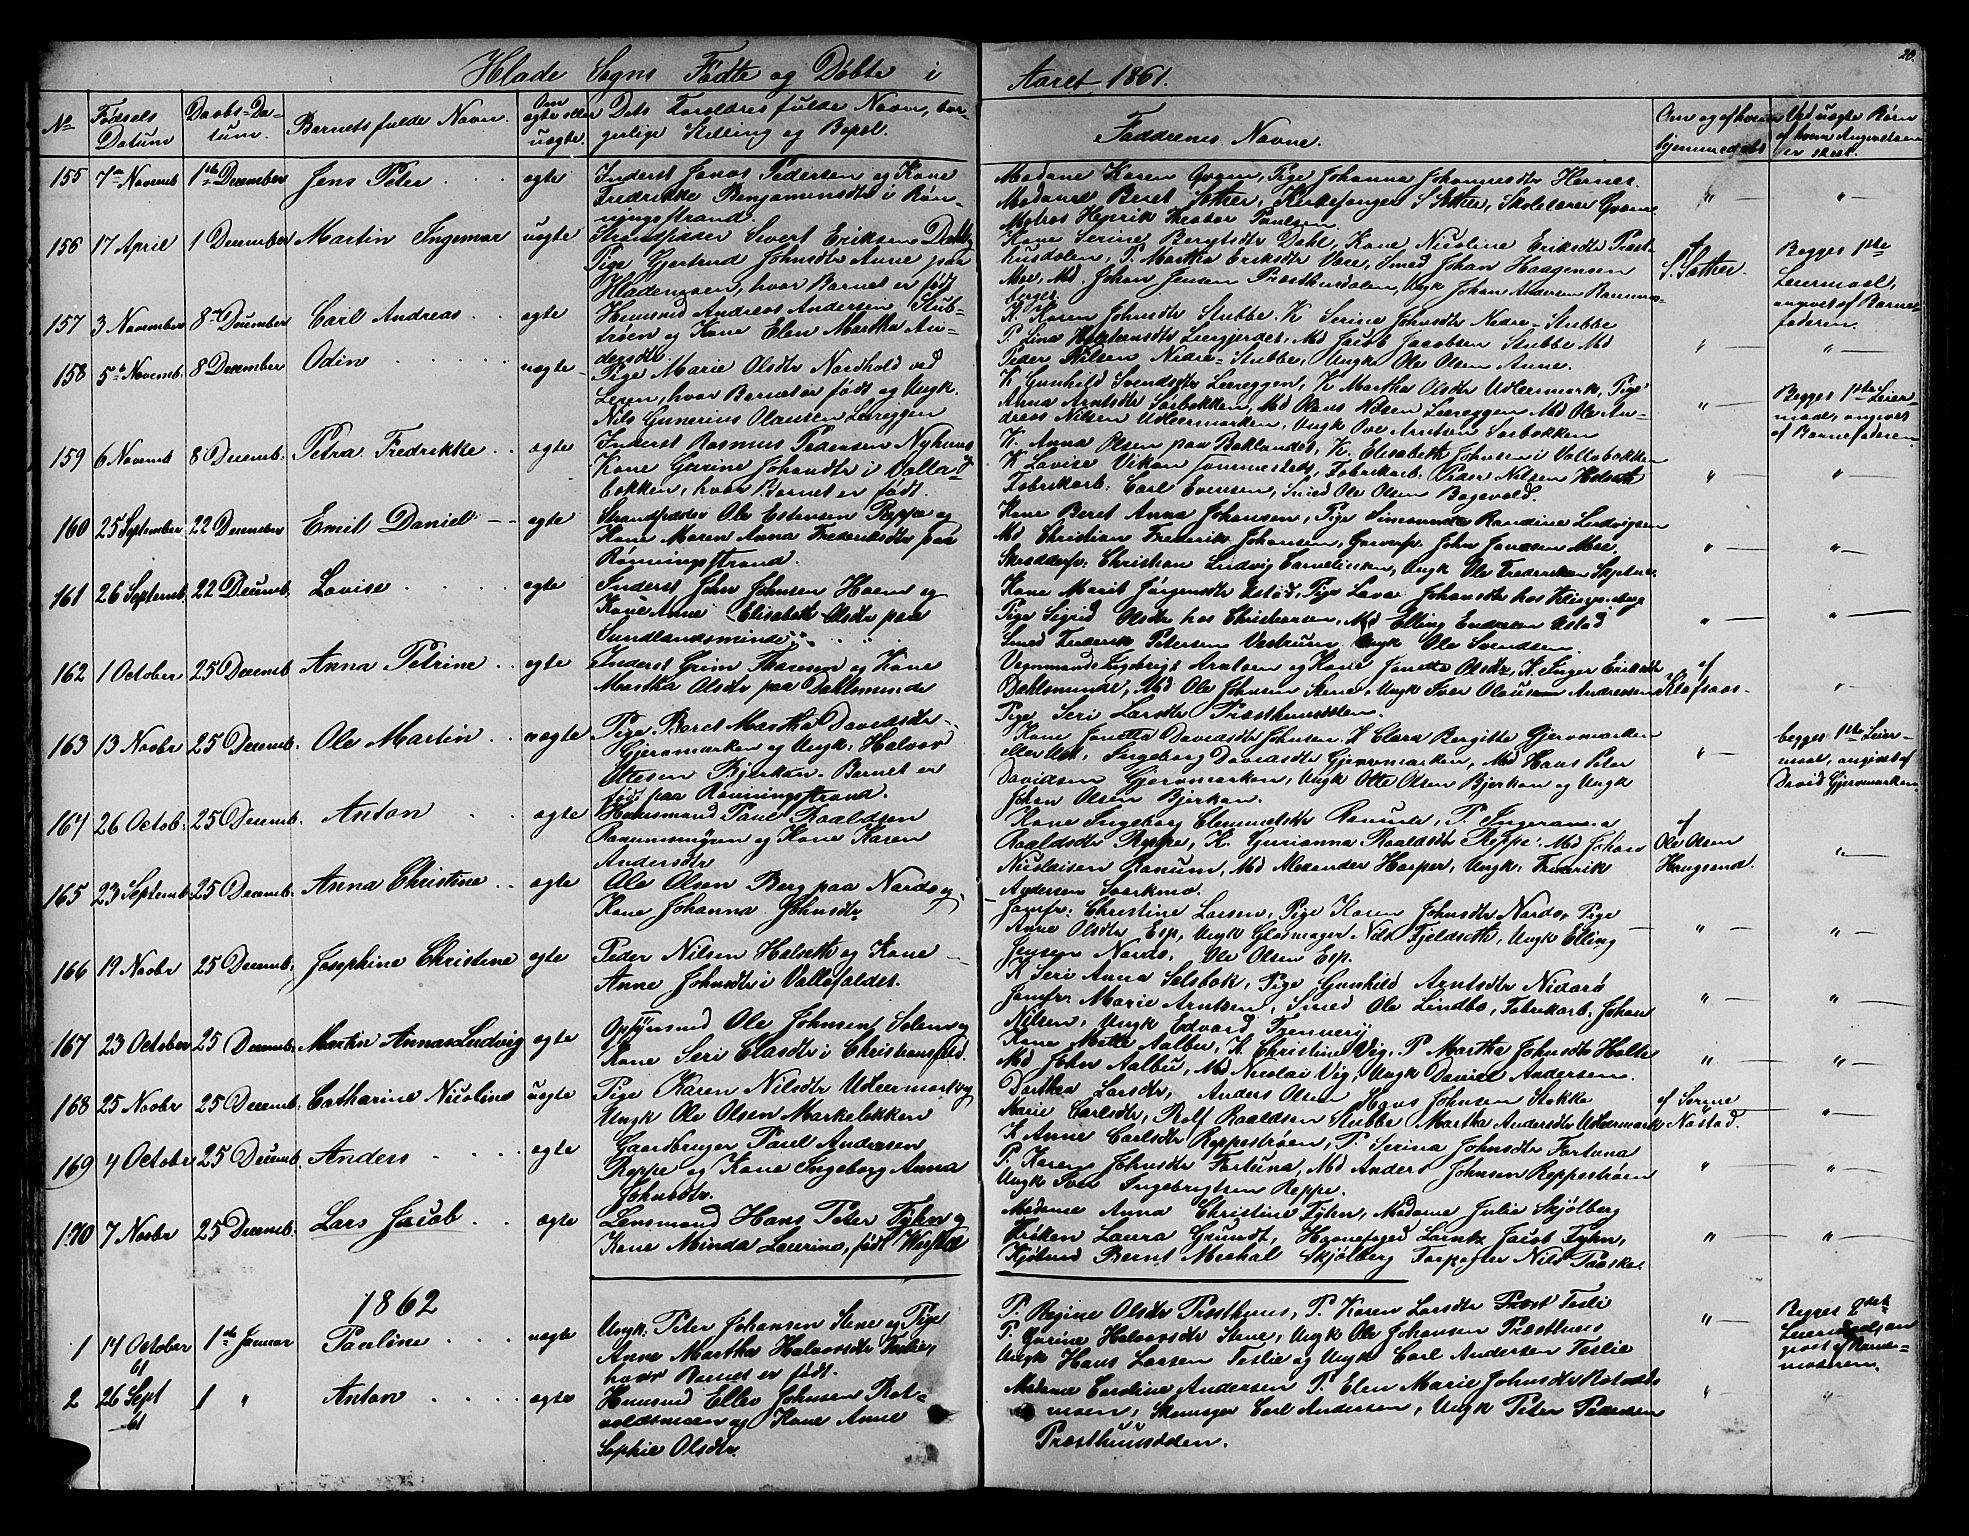 20.
Hlade Sogns Fødte og Døbte i Aaret 1861.
No Fødsels Datum Daabs-Datum. Barnets fulde Navn. Om ægte eller uægte. Dets Forældres fulde Navn, borgerlige Stilling og Bopæl. Faddrenes Navne. Om og af hvem hjemmedøbt Ved uægte Børn af hvem Angivelsen er skeet.
155 7de Novemb 1ste December Jens Peter ægte
Inderst Jonas Pedersen og Kone
Fredrikke Benjaminsdtr i Røn-
ningsstrand.
Madame Karen Gram, Pige Johanna Johannesdtr Hernes.
Madame Beret Sæther, Kirkesanger S Sæther, Skolelærer Gram
Matros Henrik Theodor Paulsen
" "
156 17 April 1 December Martin Ingemar uægte
Strandsidder Sivert Eriksen Dahl og
Pige Gjertrud Johnsdtr Aune paa
Hlademoen, hvor Barnet er født
Kone Serine Bergtsdtr Dahl, Kone Nicoline Eriksdtr Præst-
husdalen, P. Martha Eriksdtr Være, Smed Johan Haagensen
Moe, Md. Johan Jensen Præsthusdalen, Ungk Johan Andersen Ranum-
berget.
af
S. Sæther.
Begges 1ste
Leiermaal,
angivet af Barne-
faderen.
157 3 November 8de December Carl Andreas ægte
Huusmd Andreas Andersen Stub-
trøen og Kone Elen Martha An-
dersdtr.
K. Karen Johnsdtr Stubbe. K Serine Johnsdtr Nedre-Stubbe
P. Lina Leergjerdet, Md Jacob Jacobsen Stubbe Md
Peder Nilsen Nedre-Stubbe, Ungk Ole Olsen Aune.
" "
158 5te Novemb. 8 December Odin uægte
Pige Marie Olsdtr Nordhold ved
Leren, hvor Barnet er født og Ungk.
Nils Gunerius Olausen Leereggen
K Gunhild Svendsdtr Leereggen, K Martha Olsdtr Udleermark, Pige
Anna Arntsdtr Sorbokken, Md Olaus Nilsen Leereggen Md Ole An-
dreas Nilsen Udleermarken, Ungk Ove Arntsen Sorbokken
"
Begges 1ste Leier-
maal, angivet
af Barnefaderen
159 6 Novemb 8 Decemb. Petra Fredrikke ægte
Inderst Rasmus Pedersen Nyhuus og
Kone Gurine Johansdtr i Valla-
bokken, hvor Barnet er født.
K. Anna Olsen paa Baklandet, K. Elisabeth Johnsen i Vollabokken
K Lovise Vikan sammesteds, Fabrikarb. Peder Nilsen Halseth
Fabrikarb. Carl Evensen, Smed Ole Olsen Bagevold.
" "
160 25 September 22 December Emil Daniel ægte
Strandsidder Ole Estensen Reppe og
Kone Maren Anna Frederiksdtr paa
Rønningsstrand.
Kone Beret Anna Johansen, Pige Randine Ludvigsen
Md Christian Frederik Johansen, John Jonassen Moe.
Skræddersv. Christian Ludvig Corneliussen, Ungk Ole Frederiksen
" "
161 26 Septemb. 22 Decemb. Lovise ægte
Inderst John Johnsen Hoem og
Kone Anne Elisabeth Olsdtr paa
Sundlandsminde.
Kone Marit Jørgensdtr Østad, Pige Johansdtr hos Klingenberg
Pige Sigrid Olsdtr hos Christianson, Md Elling Endresen Østad
Smed Frederik Petersen Vestrum, Ungk Ole Svendsen.
" "
162 1 October 25 Decemb Anna Petrine ægte
Inderst Grim Thoresen og Kone
Martha Olsdtr paa Dahlsminde
Vognmand Ingebrigt Arntsen og Kone Jonetta Olsdtr, K. Inger Eriksdtr
Dahlsminde, Md Ole Johnsen Stene, Ungk Iver Olausen Andresen
Pige Seri Larsdtr Præsthuusdalen.
af
"
163 13 Novbr 25 Decemb. Ole Martin uægte
Pige Beret Martha Davidsdtr
Gjervmarken og Ungk. Halvor
Olesen Bjerkan. Barnet er
født paa Rønningsstrand.
Kone Jonetta Davidsdtr Johnsen. K Clara Bergitte Gjervmarken
Ingeborg Davidsdtr Gjervmarken, Md Hans Peter
Davidsen Gjervmarken, Ungk Ole Olsen Bjerkan og Ungk
Johan Olsen Bjerkan.
"
begges 1ste Leier-
maal, angivet af
David Gjervmarken
164 26 Octob. 25 Decemb. Anton ægte
Huusmand Paul Roaldsen
Ranumsmyren og Kone Karen
Andersdtr
Kone Ingeborg Clemmetsdtr Ranum, P. Ingeranna
Roaldsdtr Reppe, K. Gurianna Roaldsdtr Reppe. Md Johan
Nicolaisen Ranum, Md Alexander Harper, Ungk. Frederik
Andersen Sværkmo.
af
Ole Olsen
Haugsand.
"
165 23 Septemb 25 Decemb. Anna Christine ægte
Ole Olsen Berg paa Nardo og
Kone Johanna Johnsdtr
Jomfr: Christine Larsen, Pige Karen Johnsdtr Nardo, Pige
Anne Olsdtr Esp, Ungk Glasmager Nils Fjeldseth, Ungk Elling
Jensen Nardo, Ole Olsen Esp.
" "
166 19 Novbr 25 Decemb. Josephine Christine ægte
Peder Nilsen Halseth og Kone
Anne Johnsdtr i Vollafaldet.
K Seri Anna Selsbak, Pige Gunhild Arntsdtr Nidarø
Jomfr: Marie Arntzen, Smed Ole Lindbo, Fabrikarb. Johan
Nilsen, Ungk Edvard Trenvery
" "
167 23 October 25 Decemb. Martin Annæus Ludvig ægte
Opsynsmd Ole Johnsen Solem og
Kone Seri Olasdtr i Christiansfeld.
Kone Mette Aalbu, K. Christine Vig, P Martha Johnsdtr Holte
Md John Aalbu, Md Nicolai Vig, Ungk Daniel Andersen.
" "
168 25 Novbr 25 Decemb. Catharine Nicoline uægte
Pige Karen Nilsdtr Udleermark og
Ungk Ole Olsen Markeløkken
Dorthea Larsdtr, Anders Olsen Hans Johnsen Stokke
Marie Carlsdtr, Rolf Roaldsen Stubbe Martha Andersdtr Udleermark
af Serine
Nøstad.
"
169 4 October 25 Decemb. Anders ægte
Gaardbruger Paul Andersen
Reppe og Kone Ingeborg Anna
Johnsdtr.
K Anne Carlsdtr Reppestrøen, P. Serina Johnsdtr Fortuna
P. Karen Johnsdtr Fortuna, Md Anders Johnsen Reppestrøen
Ungk Iver Ingebrigtsen Reppe.
" "
170 7 Novbr 25 Decemb. Lars Jacob ægte
Lensmand Hans Peter Fyhn og
Kone Minda Laurine, født
Madame Anna Christine Fyhn, Madame Julia Skjølberg
Frøken Laura Grundt, Havnefoged Larntz Jacob Fyhn,
Kjøbmd Bernt Michal Skjølberg Nils Taaske.
" "
1862
1 14 October 61 1ste Januar Pauline uægte
Ungk. Peter Johansen Stene og Pige
Anne Martha Halvorsdtr Teslie,
hvor Barnet er født.
P. Regine Olsdtr Præsthuus, P. Karen Larsdtr Præst Teslie
P. Gurine Halvorsdtr Stene, Ungk Ole Johansen Præsthuus
Ungk Hans Larsen Teslie og Ungk Carl Andersen Teslie
"
Begges 2det
Leiermaal, an
givet af Barne-
moderen.
2 26 Sept 61 1 " Anton ægte
Huusmd Ellev Johnsen Rot-
voldsmoen og Kone Anne
Sophie Olsdtr.
Madame Caroline Andersen P. Elen Marie Johnsdtr Rotvolds-
moen, Skomager Carl Andersen, Ungk Peter Pedersen
Præsthuusdalen.
" "